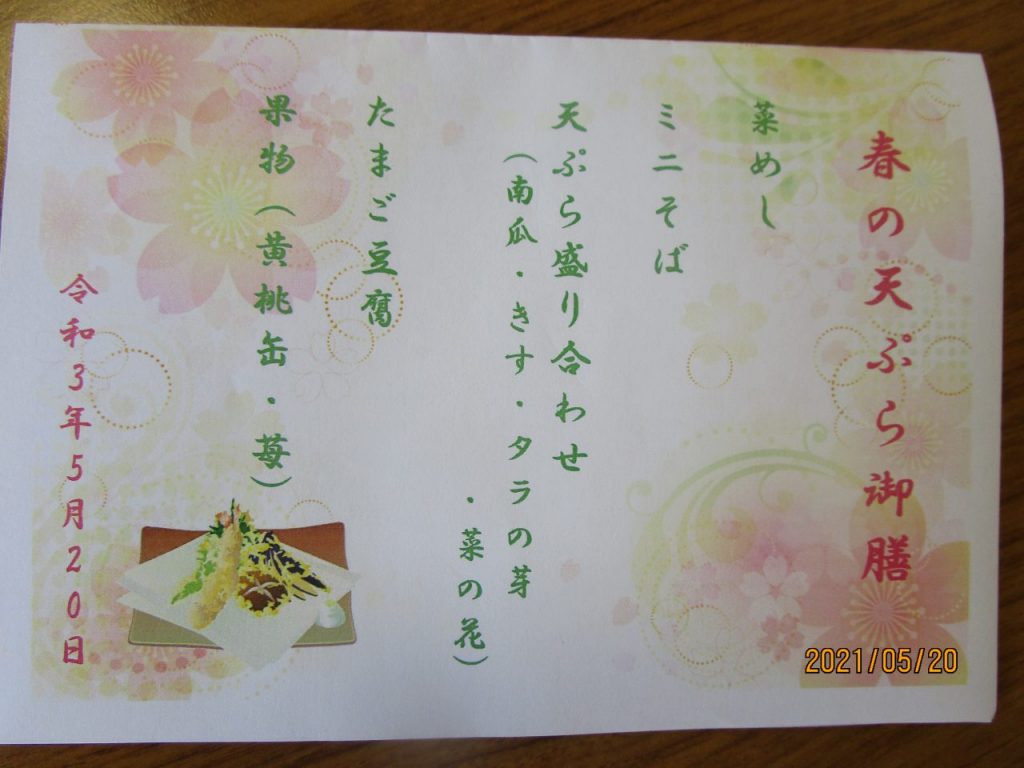 春の天ぷら御膳
菜めし
ミニそば
天ぷら盛り合わせ
（南瓜・きす・タラの芽
・菜の花）
たまご豆腐
果物（黄桃缶・苺）
令和３年５月２０日
2021/05/20